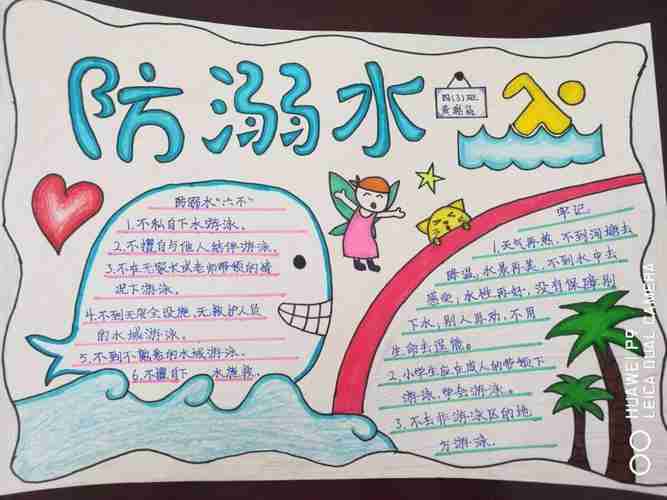 防溺水
四(3)班
防溺水“六不”
1.不私自下水游泳。
2.不擅自与他人结伴游泳。
3.不在无家长或老师带领的情
况下游泳。
4.不到无安全设施、无救护人员
的水域游泳。
5.不到不熟悉的水域游泳。
6.不擅自下 水施救。
牢记
1.天气再热,不到河塘去
降温,水景再美,不到水中去
感受;水性再好,没有保障别
下水;别人县劝,不用
生命去逞能。
2.小学生应在成人的带领下
游泳,学会游泳。
3.不去非游泳区的地
方游泳.
HUAWEI P9
LEICA DUAL CAMERA